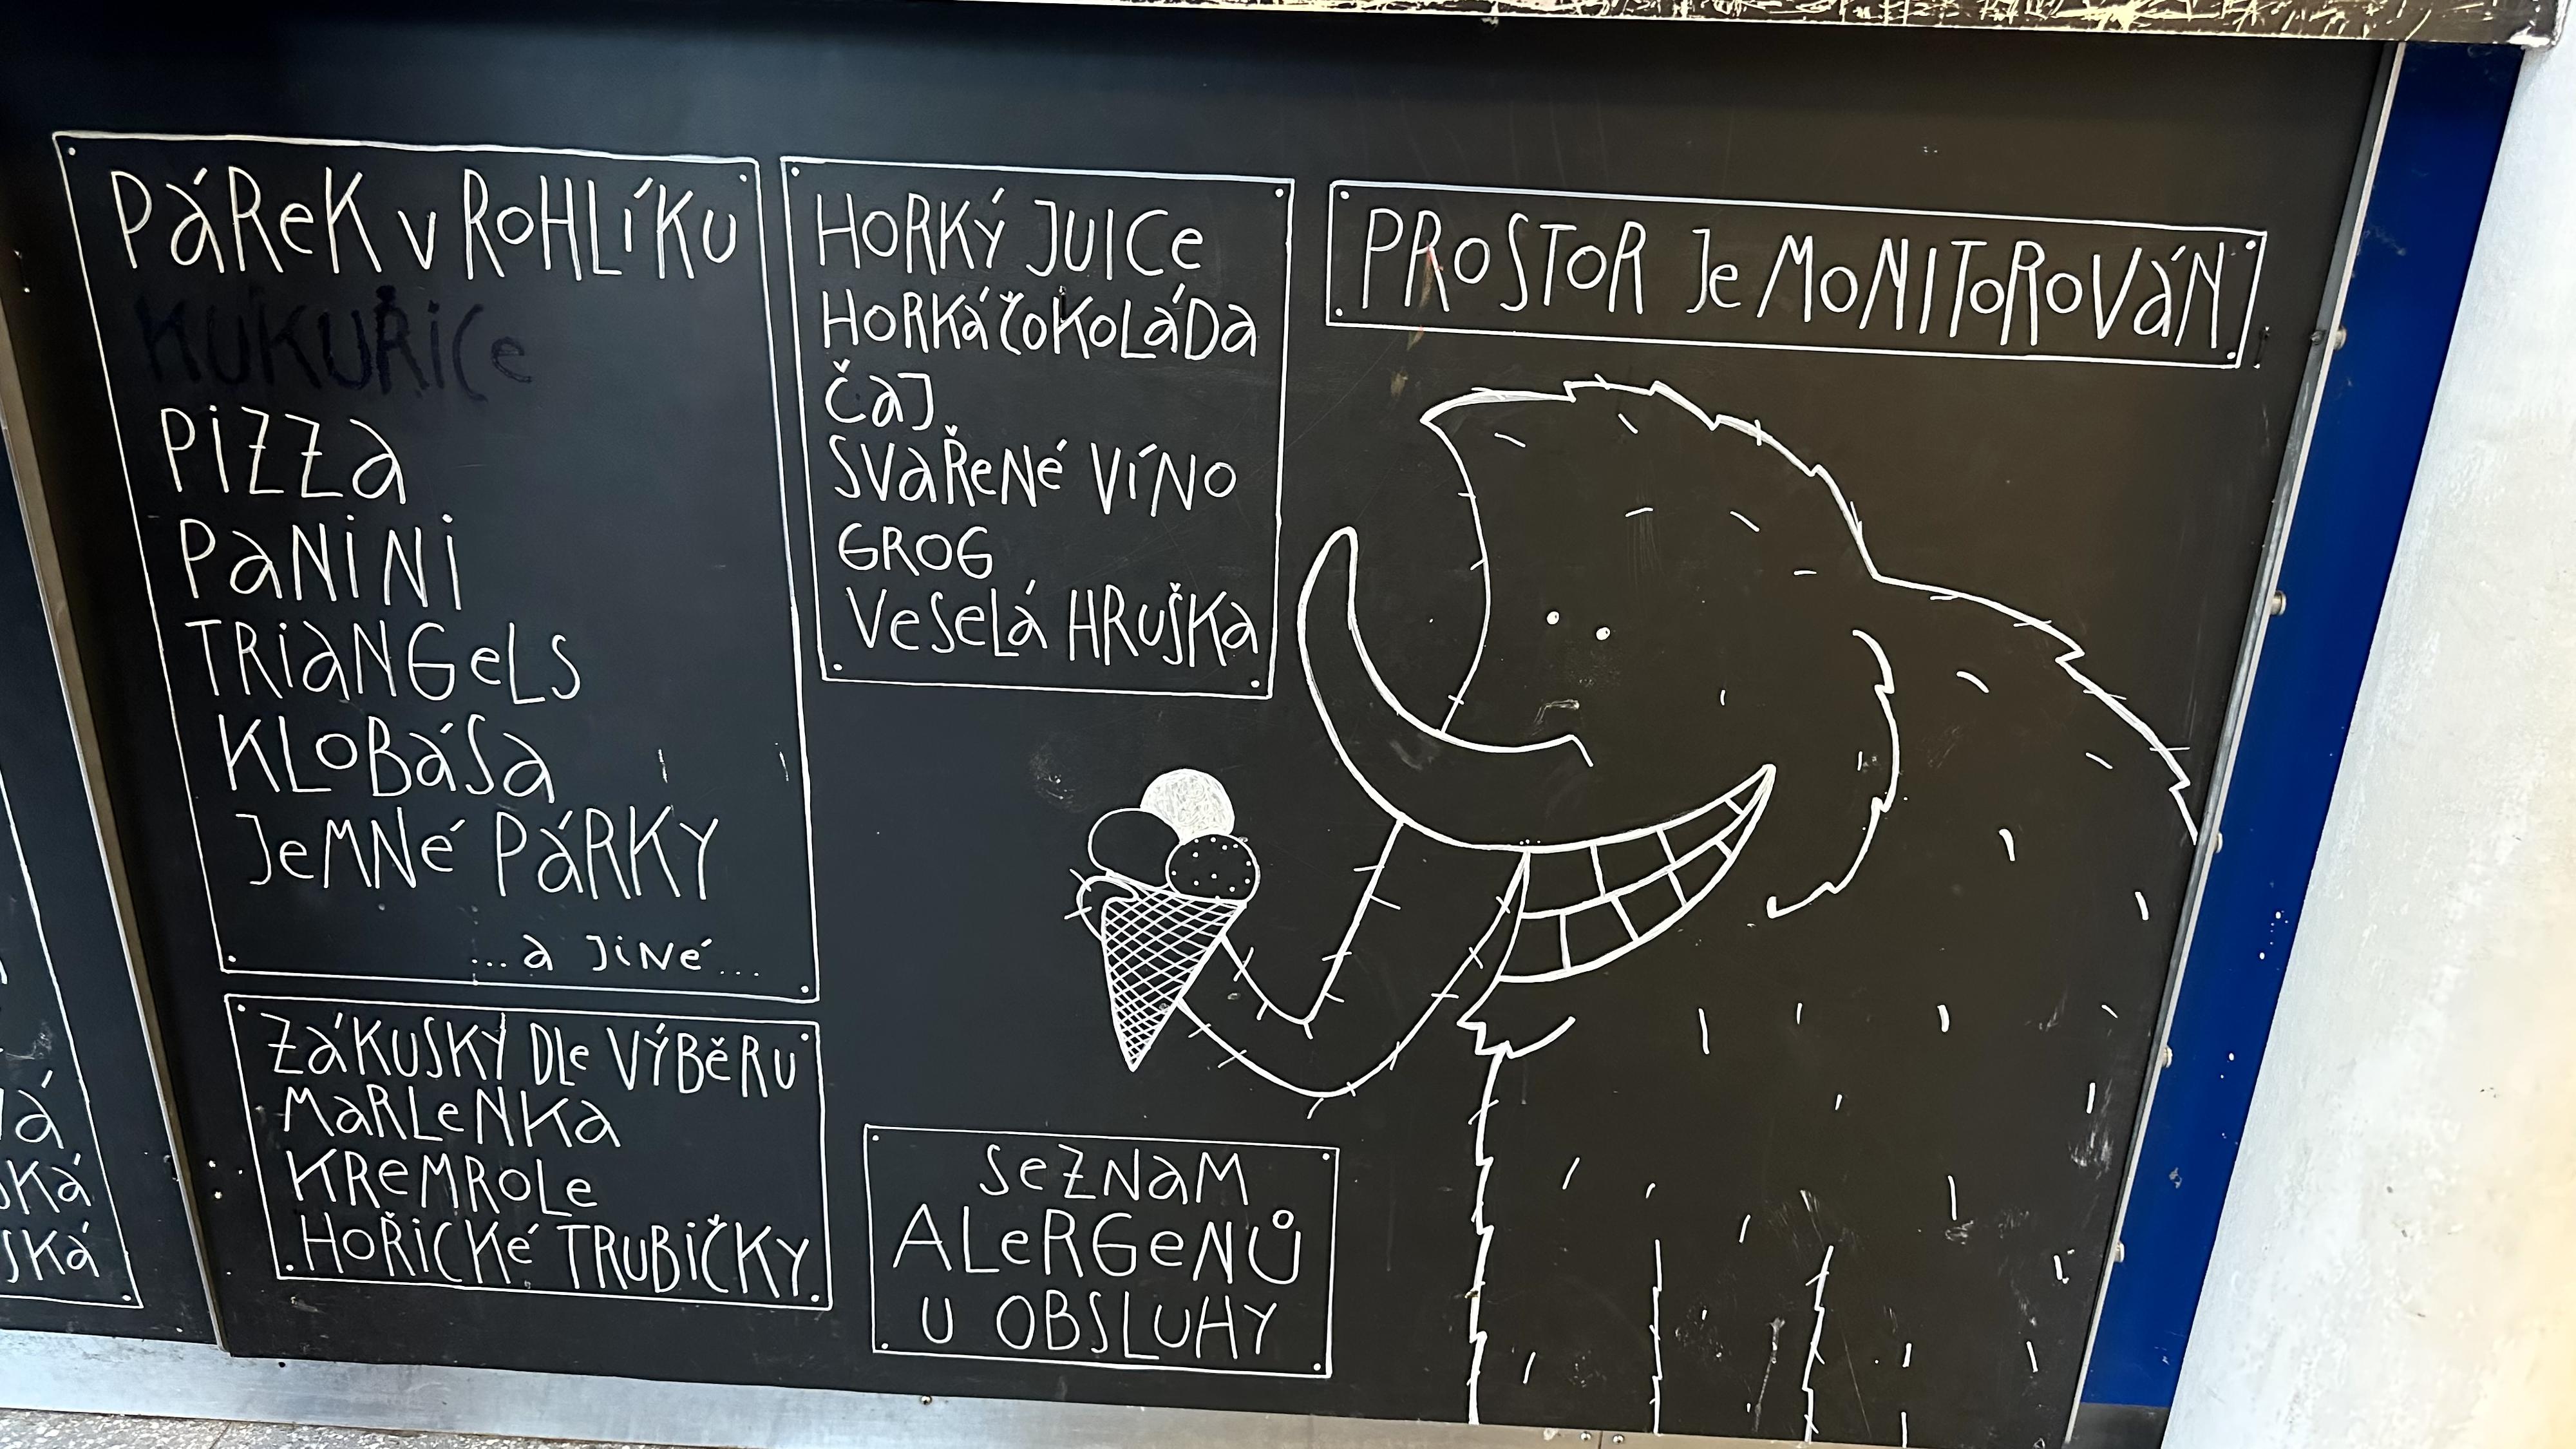 PÁREK V ROHLÍKU
KUKUŘICE
PIZZA
PANINI
TRIANGELS
KLOBÁSA
JEMNÉ PÁRKY
...A JINÉ...
ZÁKUSKY DLE VÝBĚRU
MARLENKA
KREMROLE
HOŘICKÉ TRUBIČKY
HORKÝ JUICE
HORKÁ ČOKOLÁDA
ČAJ
SVAŘENÉ VÍNO
GROG
VESELÁ HRUŠKA
PROSTOR JE MONITOROVÁN
SEZNAM
ALERGENŮ
U OBSLUHY